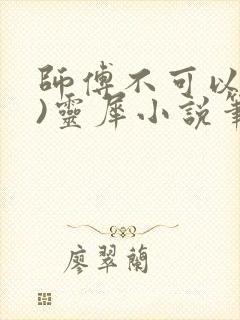 師傅不可以
)靈犀小說筆
廖翠蘭